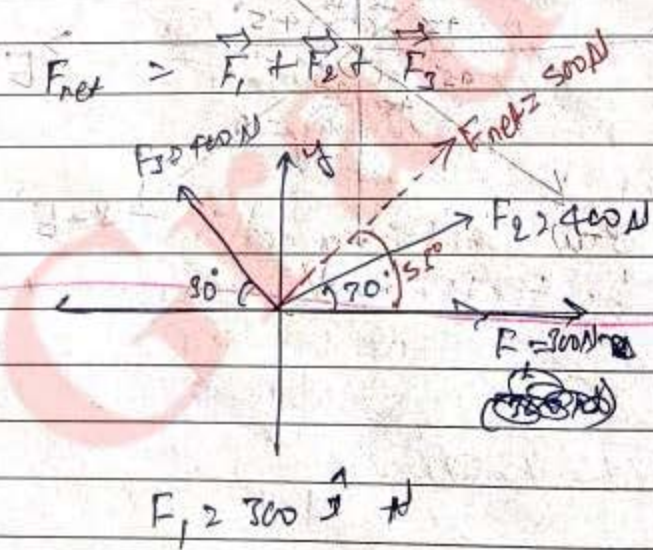 F_net = F₁ + F₂ + F₃
F_net = 500N
F₃ = 400N
y
F₂ = 400N
30°
70°
F = 300N
F₁ = 300 î N